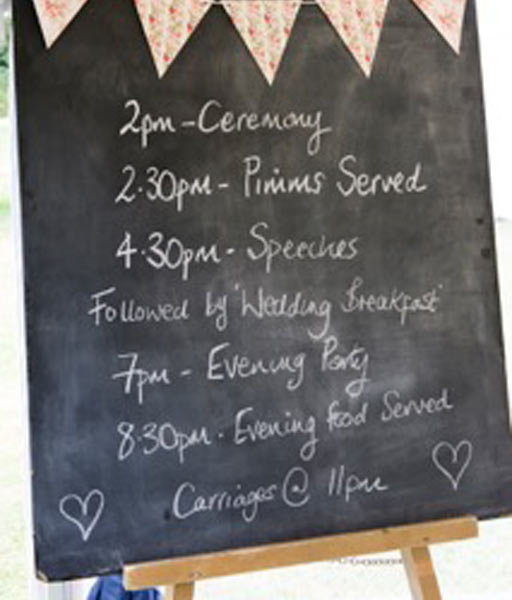 2pm - Ceremony
2.30pm - Pimms Served
4.30pm - Speeches
Followed by 'Wedding Breakfast'
7pm - Evening Party
8.30pm. Evening food Served
Carriages @ 11pm